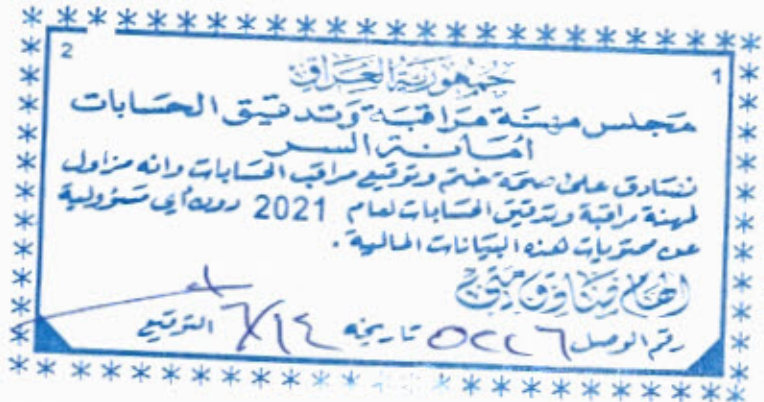 2
1
جمهورية العراق
مجلس مهنة مراقبة وتدقيق الحسابات
أمانة السر
نصادق على صحة ختم وتوقيع مراقب الحسابات وانه مزاول
لمهنة مراقبة وتدقيق الحسابات لعام 2021 دون أي مسؤولية
عن محتويات هذه البيانات المالية .
الهام صادق متي
رقم الوصل ٥٢٢٦ تاريخه ٦/١٤ التوقيع